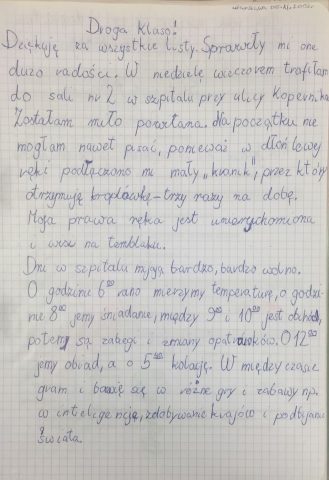 Droga Klaso!
Dziękuję za wszystkie listy. Sprawiły mi one
dużo radości. W niedzielę wieczorem trafiłam
do sali nr 2 w szpitalu przy ulicy Kopernika.
Zostałam miło powitana. Na początku nie
mogłam nawet pisać, ponieważ w dłoń lewej
ręki podłączono mi mały „kranik”, przez który
otrzymuję kroplówkę - trzy razy na dobę.
Moja prawa ręka jest unieruchomiona
i wisi na temblaku.
Dni w szpitalu mijają bardzo, bardzo wolno.
O godzinie 6⁰⁰ rano mierzymy temperaturę, o godzi-
nie 8⁰⁰ jemy śniadanie, między 9⁰⁰ i 10⁰⁰ jest obchód,
potem są zabiegi i zmiany opatrunków. O 12⁰⁰
jemy obiad, a o 5⁰⁰ kolację. W między czasie
gram i bawię się w różne gry i zabawy np.
w inteligencję, zdobywanie krajów i podbijanie
świata.